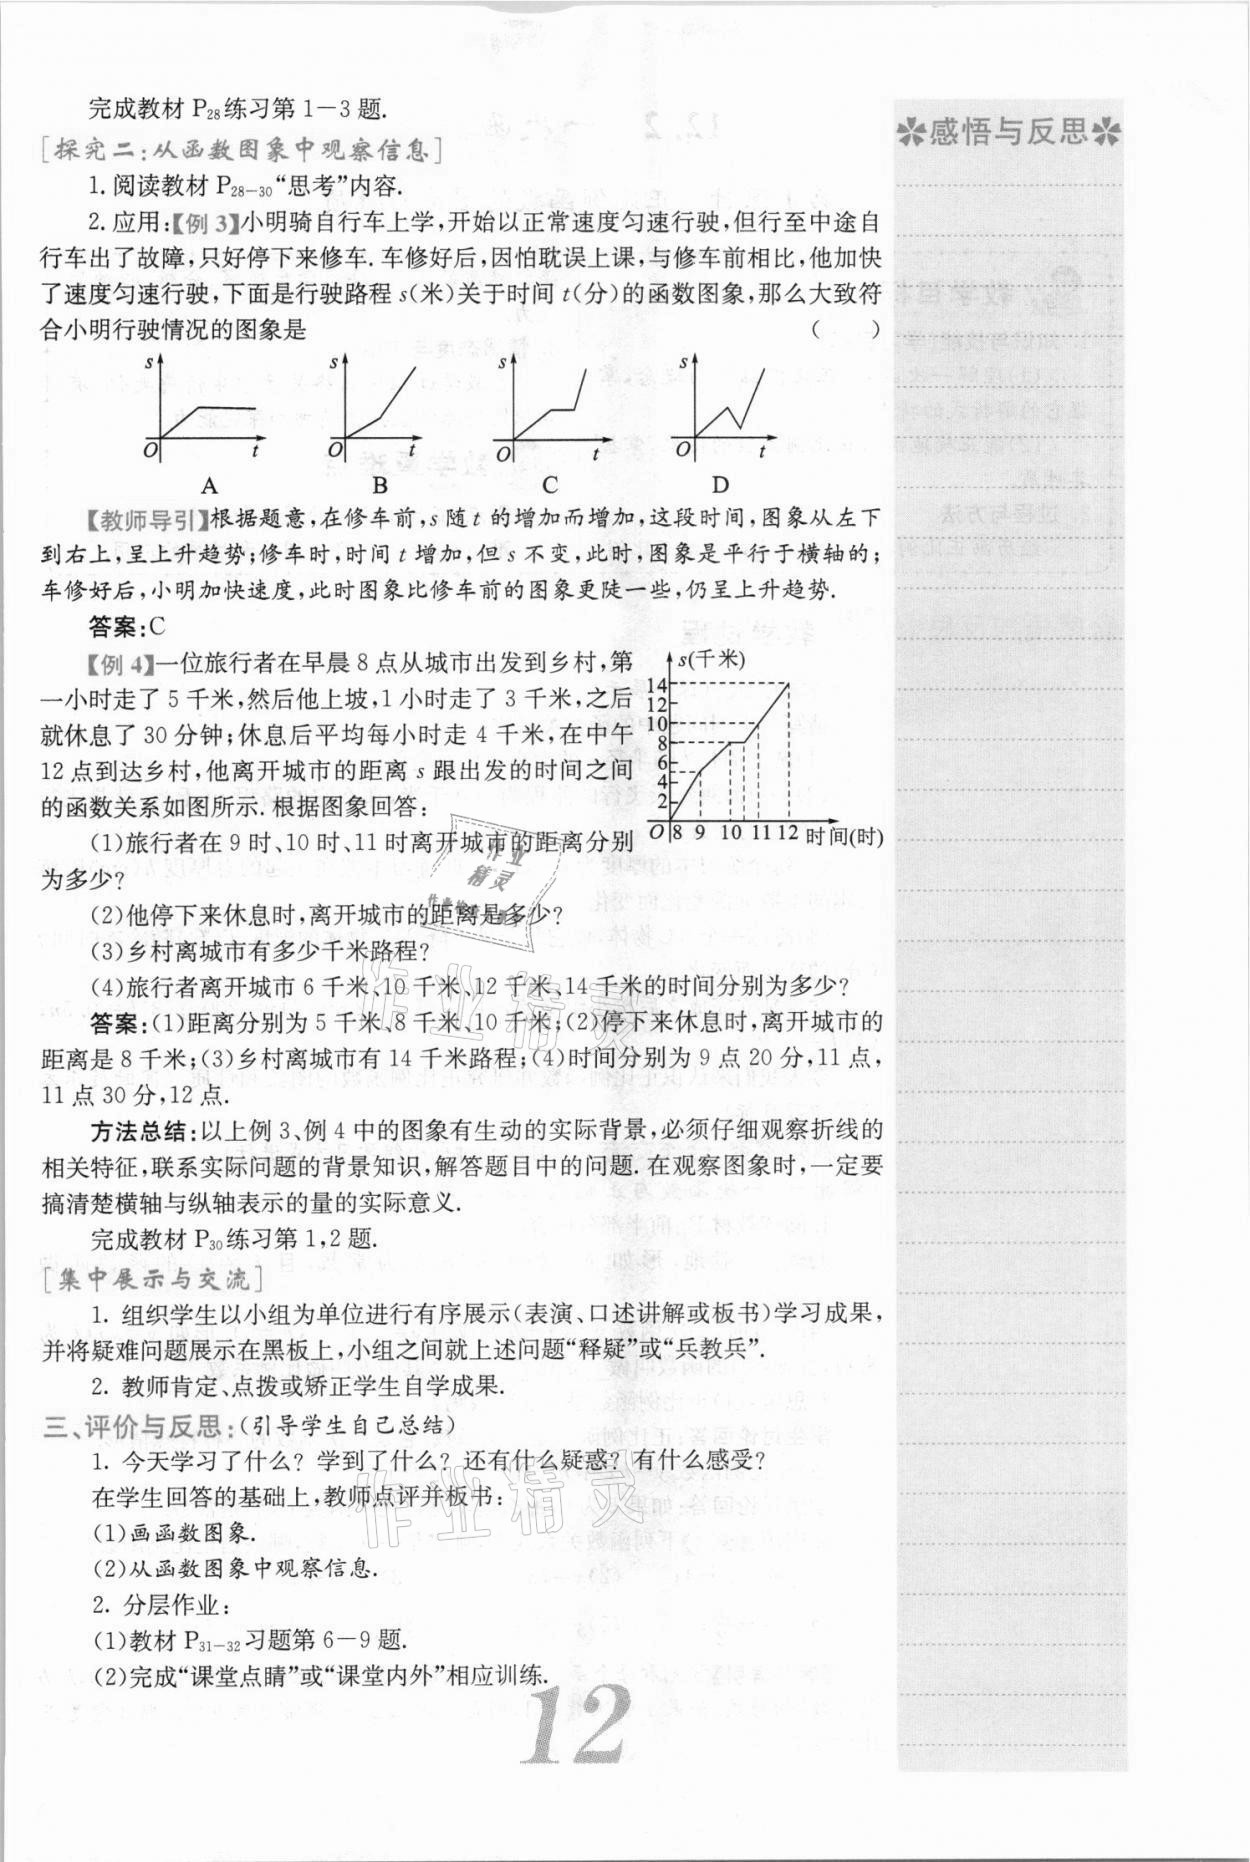 完成教材 P28练习第 1－3 题.
[探究二:从函数图象中观察信息]
1.阅读教材 P28-30“思考”内容.
2.应用:【例 3】小明骑自行车上学,开始以正常速度匀速行驶,但行至中途自
行车出了故障,只好停下来修车.车修好后,因怕耽误上课,与修车前相比,他加快
了速度匀速行驶,下面是行驶路程 s(米)关于时间 t(分)的函数图象,那么大致符
合小明行驶情况的图象是 ( )
s s s s
O t O t O t O t
A B C D
【教师导引】根据题意,在修车前,s 随 t 的增加而增加,这段时间,图象从左下
到右上,呈上升趋势;修车时,时间 t 增加,但 s 不变,此时,图象是平行于横轴的;
车修好后,小明加快速度,此时图象比修车前的图象更陡一些,仍呈上升趋势.
答案:C
【例 4】一位旅行者在早晨 8 点从城市出发到乡村,第
一小时走了 5 千米,然后他上坡,1 小时走了 3 千米,之后
就休息了 30 分钟;休息后平均每小时走 4 千米,在中午
12 点到达乡村,他离开城市的距离 s 跟出发的时间之间
的函数关系如图所示.根据图象回答:
s(千米)
14
12
10
8
6
4
2
O 8 9 10 11 12 时间(时)
(1)旅行者在 9 时、10 时、11 时离开城市的距离分别
为多少?
(2)他停下来休息时,离开城市的距离是多少?
(3)乡村离城市有多少千米路程?
(4)旅行者离开城市 6 千米、10 千米、12 千米、14 千米的时间分别为多少?
答案:(1)距离分别为 5 千米、8 千米、10 千米;(2)停下来休息时,离开城市的
距离是 8 千米;(3)乡村离城市有 14 千米路程;(4)时间分别为 9 点 20 分,11 点,
11 点 30 分,12 点.
方法总结:以上例 3、例 4 中的图象有生动的实际背景,必须仔细观察折线的
相关特征,联系实际问题的背景知识,解答题目中的问题.在观察图象时,一定要
搞清楚横轴与纵轴表示的量的实际意义.
完成教材 P30练习第 1,2 题.
[集中展示与交流]
1. 组织学生以小组为单位进行有序展示(表演、口述讲解或板书)学习成果,
并将疑难问题展示在黑板上,小组之间就上述问题“释疑”或“兵教兵”.
2. 教师肯定、点拨或矫正学生自学成果.
三、评价与反思:(引导学生自己总结)
1. 今天学习了什么? 学到了什么? 还有什么疑惑? 有什么感受?
在学生回答的基础上,教师点评并板书:
(1)画函数图象.
(2)从函数图象中观察信息.
2. 分层作业:
(1)教材 P31-32习题第 6－9 题.
(2)完成“课堂点睛”或“课堂内外”相应训练.
12
感悟与反思
作业精灵
作业精灵
作业精灵